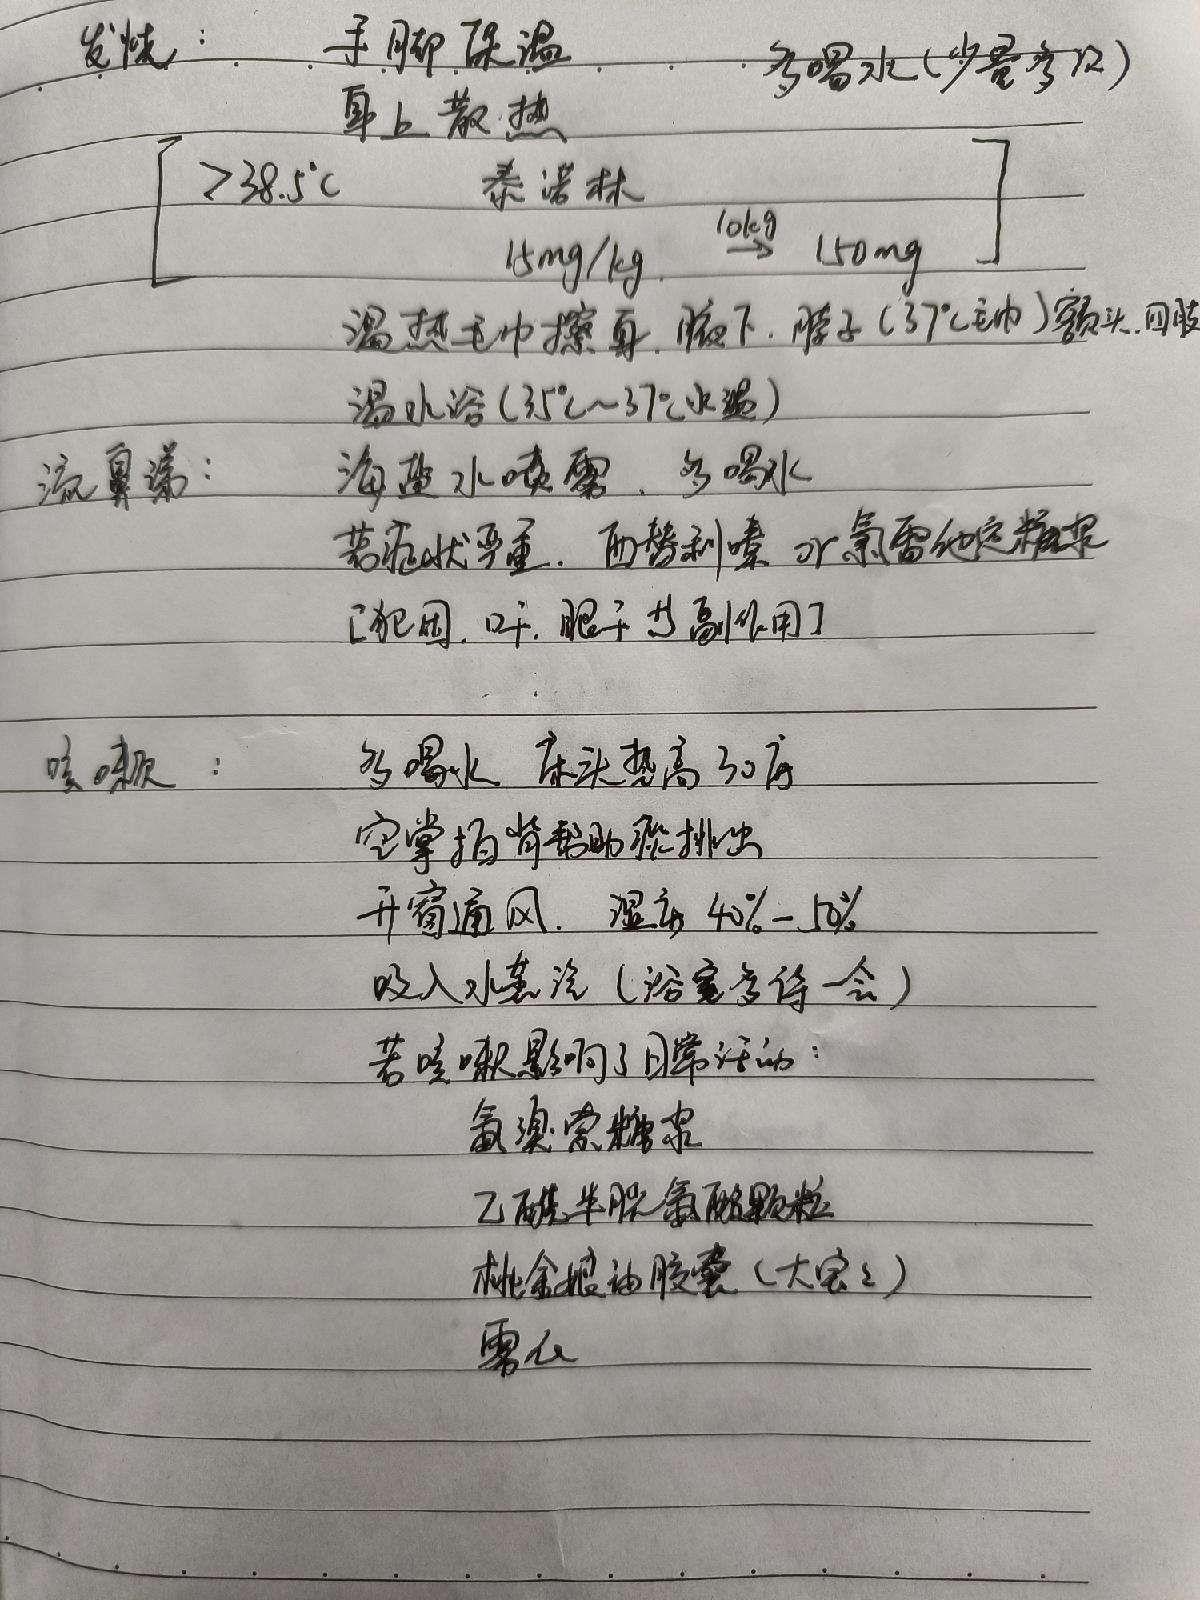 发烧： 手脚保温 多喝水(少量多次)
身上散热
>38.5℃ 泰诺林
15mg/kg 10kg → 150mg
温热毛巾擦身.腋下.脖子(37℃毛巾)额头.四肢
温水浴(35℃~37℃水温)
流鼻涕： 海盐水喷雾、多喝水
若症状严重. 西替利嗪 or 氯雷他定糖浆
[犯困.口干.肥干 副作用]
咳嗽： 多喝水 床头垫高30度
空掌拍背帮助痰排出
开窗通风. 湿度 40%-50%
吸入水蒸汽(浴室多待一会)
若咳嗽影响了日常活动：
氨溴索糖浆
乙酰半胱氨酸颗粒
桃金娘油胶囊(大宝)
雾化